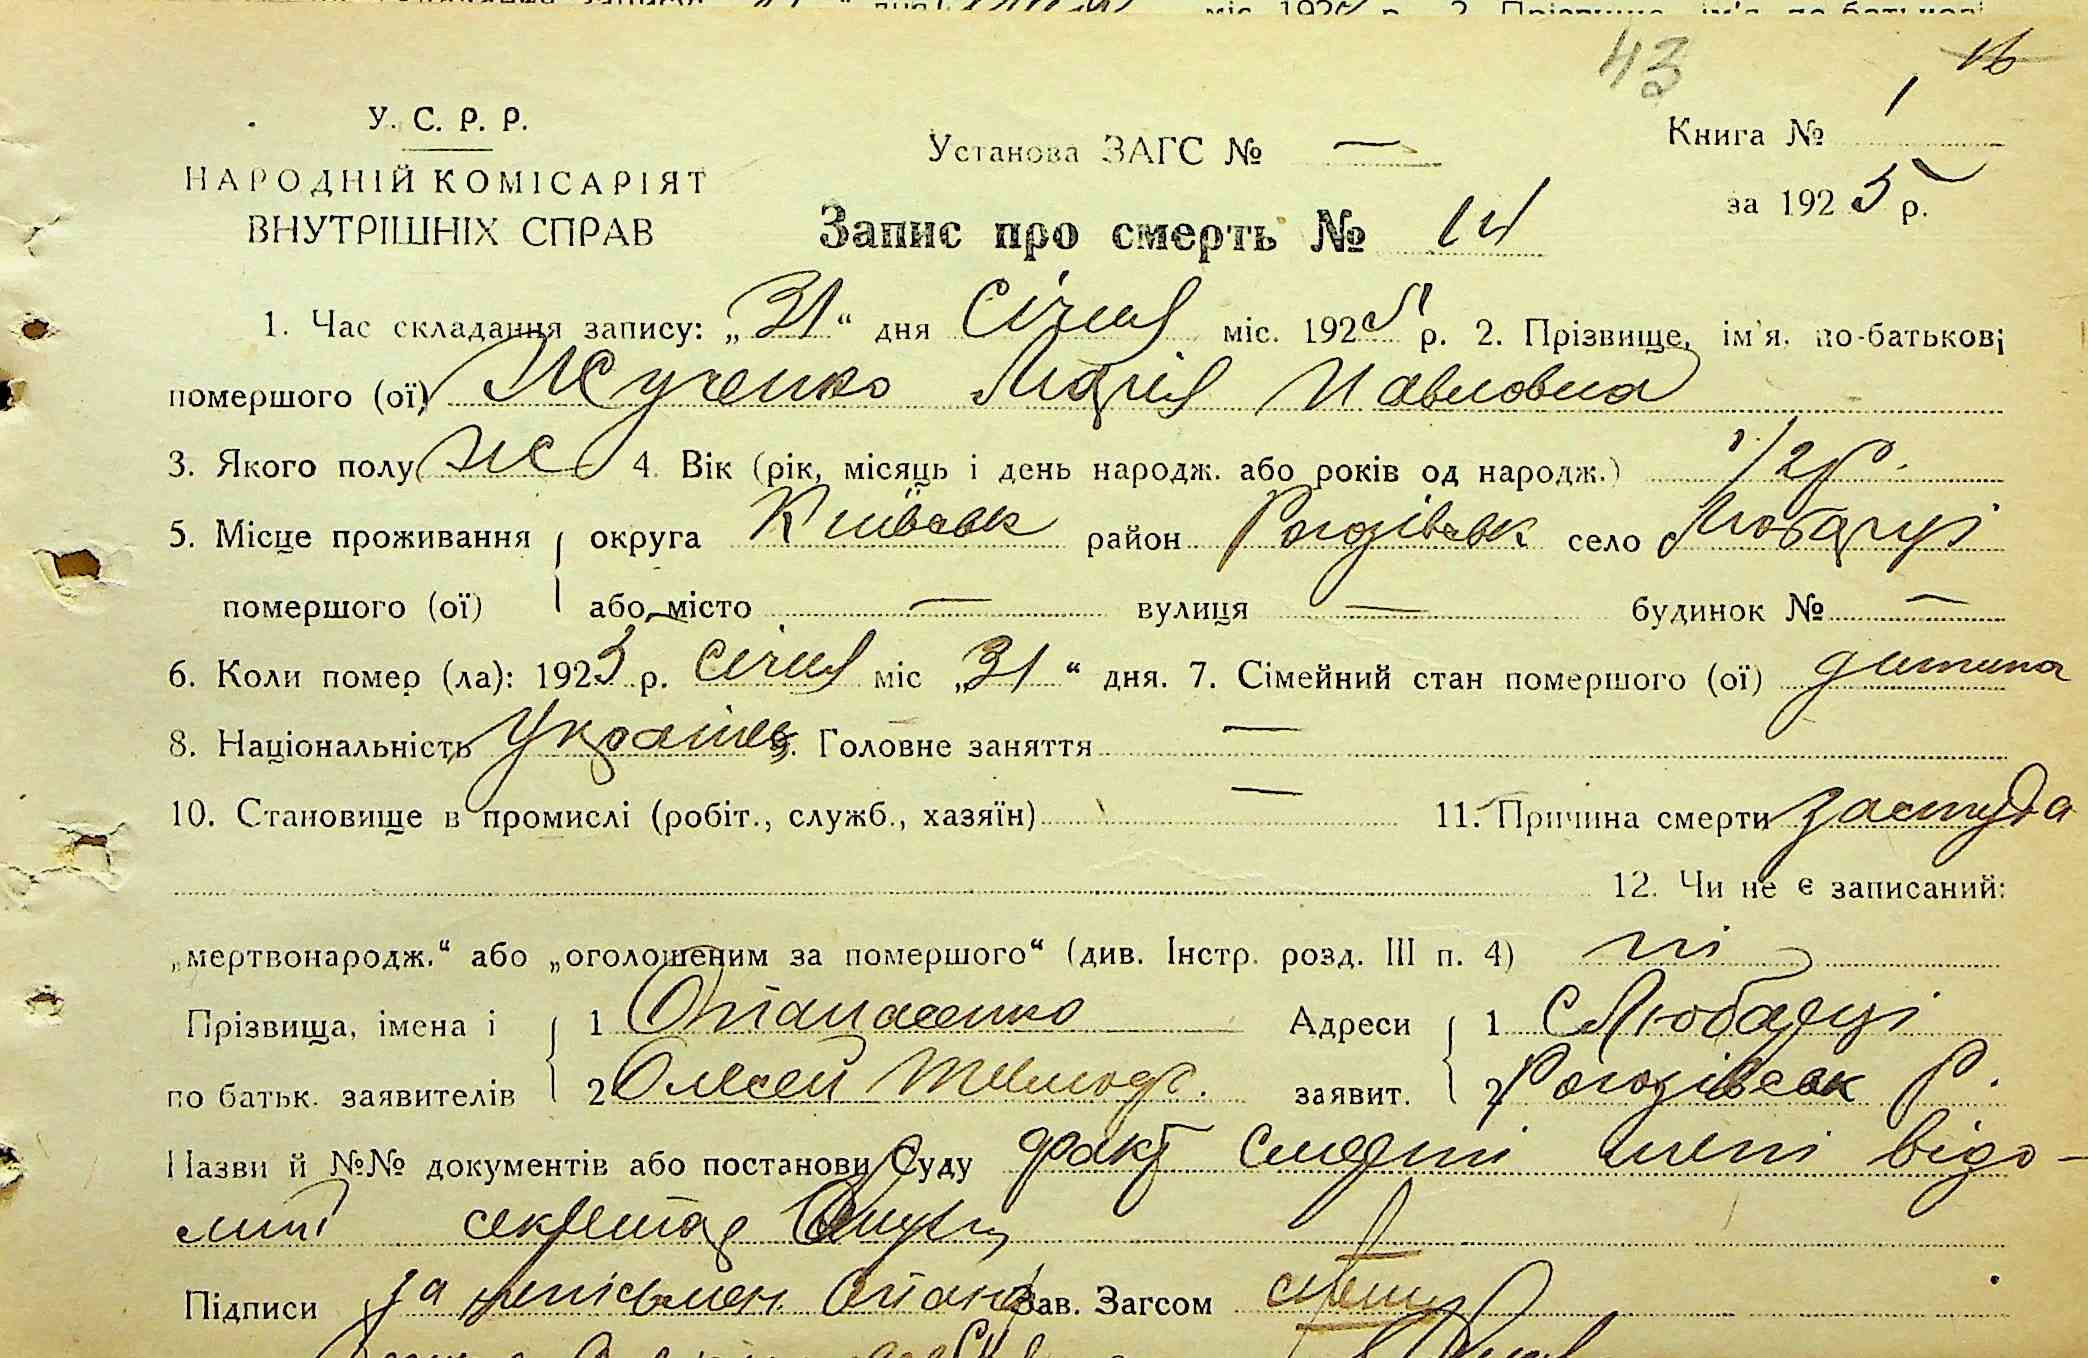 43 16
У. С. Р. Р.
НАРОДНІЙ КОМІСАРІЯТ
ВНУТРІШНІХ СПРАВ
Установа ЗАГС № —
Книга № 1
за 1925 р.
Запис про смерть № 14
1. Час складання запису: „31“ дня Січня міс. 1925 р. 2. Прізвище, ім'я, по-батькові
помершого (ої) Жученко Марія Павловна
3. Якого полу ж 4. Вік (рік, місяць і день народж. або років од народж.) 1/2 р.
5. Місце проживання округа Київськ район Рогозівськ село Любарці
помершого (ої) або місто — вулиця — будинок № —
6. Коли помер (ла): 1925 р. січня міс „31“ дня. 7. Сімейний стан помершого (ої) дитина
8. Національність Україн 9. Головне заняття —
10. Становище в промислі (робіт., служб., хазяїн) — 11. Причина смерти застуда
12. Чи не є записаний:
„мертвонародж.“ або „оголошеним за помершого“ (див. Інстр. розд. III п. 4) ні
Прізвища, імена і 1 Опанасенко Адреси 1 с Любарці
по батьк. заявителів 2 Олексей заявит. 2 Рогозівськ р.
Назви й №№ документів або постанови Суду факт смерти мені відо-
мий секретар
Підписи за неписьмен. Зав. Загсом